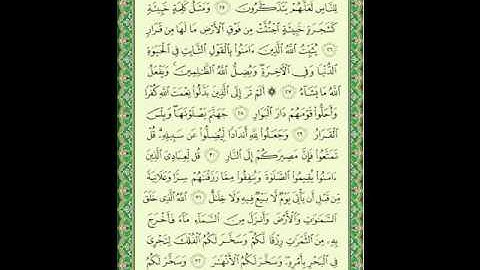 لِلنَّاسِ لَعَلَّهُمْ يَتَذَكَّرُونَ ٢٥ وَمَثَلُ كَلِمَةٍ خَبِيثَةٍ
كَشَجَرَةٍ خَبِيثَةٍ ٱجْتُثَّتْ مِن فَوْقِ ٱلْأَرْضِ مَا لَهَا مِن قَرَارٍ
٢٦ يُثَبِّتُ ٱللَّهُ ٱلَّذِينَ ءَامَنُوا۟ بِٱلْقَوْلِ ٱلثَّابِتِ فِى ٱلْحَيَوٰةِ
ٱلدُّنْيَا وَفِى ٱلْءَاخِرَةِ ۖ وَيُضِلُّ ٱللَّهُ ٱلظَّٰلِمِينَ ۚ وَيَفْعَلُ
ٱللَّهُ مَا يَشَآءُ ٢٧ ۞ أَلَمْ تَرَ إِلَى ٱلَّذِينَ بَدَّلُوا۟ نِعْمَتَ ٱللَّهِ كُفْرًا
وَأَحَلُّوا۟ قَوْمَهُمْ دَارَ ٱلْبَوَارِ ٢٨ جَهَنَّمَ يَصْلَوْنَهَا ۖ وَبِئْسَ
ٱلْقَرَارُ ٢٩ وَجَعَلُوا۟ لِلَّهِ أَندَادًا لِّيُضِلُّوا۟ عَن سَبِيلِهِۦ ۗ قُلْ
تَمَتَّعُوا۟ فَإِنَّ مَصِيرَكُمْ إِلَى ٱلنَّارِ ٣٠ قُل لِّعِبَادِىَ ٱلَّذِينَ
ءَامَنُوا۟ يُقِيمُوا۟ ٱلصَّلَوٰةَ وَيُنفِقُوا۟ مِمَّا رَزَقْنَٰهُمْ سِرًّا وَعَلَانِيَةً
مِّن قَبْلِ أَن يَأْتِىَ يَوْمٌ لَّا بَيْعٌ فِيهِ وَلَا خِلَٰلٌ ٣١ ٱللَّهُ ٱلَّذِى خَلَقَ
ٱلسَّمَٰوَٰتِ وَٱلْأَرْضَ وَأَنزَلَ مِنَ ٱلسَّمَآءِ مَآءً فَأَخْرَجَ
بِهِۦ مِنَ ٱلثَّمَرَٰتِ رِزْقًا لَّكُمْ ۖ وَسَخَّرَ لَكُمُ ٱلْفُلْكَ لِتَجْرِىَ
فِى ٱلْبَحْرِ بِأَمْرِهِۦ ۖ وَسَخَّرَ لَكُمُ ٱلْأَنْهَٰرَ ٣٢ وَسَخَّرَ لَكُمُ